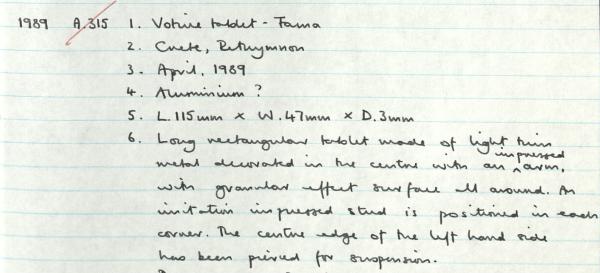 1989 A.315 1. Votive tablet - Tama
2. Crete, Rethymnon
3. April, 1989
4. Aluminium ?
5. L.115mm x W.47mm x D.3mm
6. Long rectangular tablet made of light thin
metal decorated in the centre with an impressed arm,
with granular effect surface all around. An
imitation impressed stud is positioned in each
corner. The centre edge of the left hand side
has been pierced for suspension.